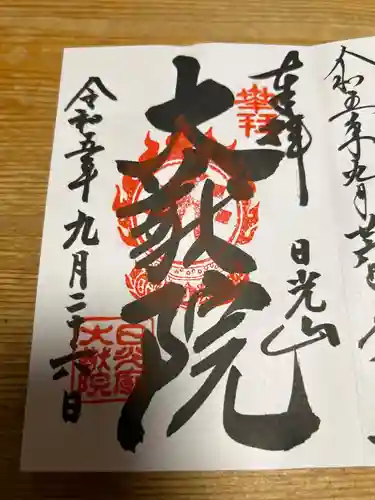 奉拝
日光山
大猷院
令和五年九月二十六日
奉拝
日光廟
大猷院
令和五年九月廿